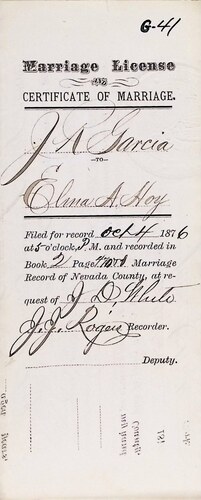 G-41
Marriage License
CERTIFICATE OF MARRIAGE.
J R Garcia
—TO—
Elma A. Hoy
Filed for record Oct 4 1876
at 5 o'clock, P. M. and recorded in
Book 2 Page Marriage
Record of Nevada County, at re-
quest of J. D. White
J. J. Rogers Recorder.
Deputy.